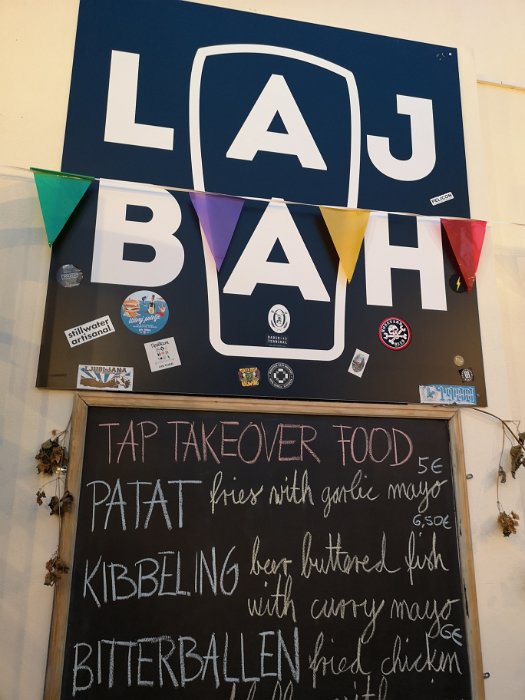 LAJ
BAH
PELICON
stillwater
artisanal
LJUBLJANA
TAP TAKEOVER FOOD
5€
PATAT fries with garlic mayo
6,50€
KIBBELING beer buttered fish
with curry mayo
6€
BITTERBALLEN fried chicken
with